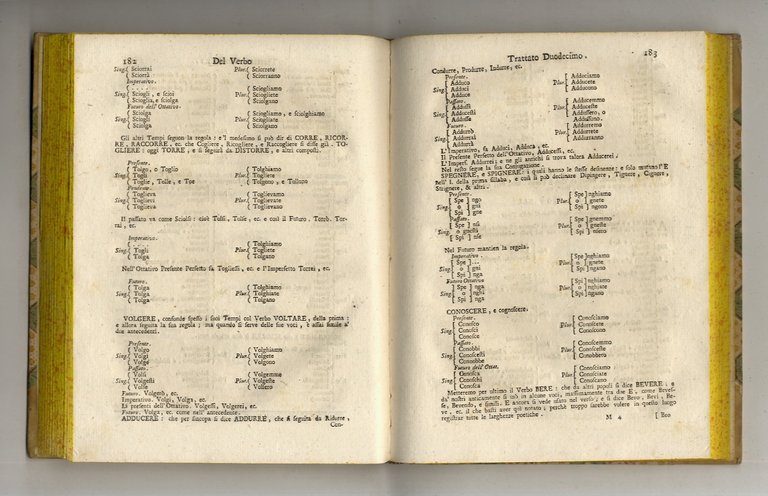 182 Del Verbo
Sing. { Sciorrai Plur. { Sciorrete
{ Sciorrà { Sciorranno
Imperativo.
{ . . . . { Sciogliamo
Sing. { Sciogli, e scioi Plur. { Sciogliete
{ Scioglia, e sciolga { Sciolgano
Futuro dell'Ottativo
{ Sciolga { Sciogliamo, e sciolghiamo
Sing. { Sciolga Plur. { Sciogliate
{ Sciolga { Sciolgano
Gli altri Tempi seguon la regola: e'l medesimo si può dir di CORRE, RICOR-
RE, RACCORRE, ec. che Cogliere, Ricogliere, e Raccogliere si disse già. TO-
GLIERE: oggi TORRE, e si seguirà da DISTORRE, e altri composti.
Presente.
{ Tolgo, o Toglio { Tolghiamo
Sing. { Togli Plur. { Togliete
{ Toglie, Tolle, e Toe { Tolgono, e Tollono
Pendente.
{ Toglieva { Toglievamo
Sing. { Toglievi Plur. { Toglievate
{ Toglieva { Toglievano
Il passato va come Sciolsi: cioè Tolsi, Tolse, ec. e così il Futuro. Torrò, Tor-
rai, ec.
Imperativo.
{ . . . . { Tolghiamo
Sing. { Togli Plur. { Togliete
{ Tolga { Tolgano
Nell'Ottativo Presente Perfetto fa Togliessi, ec. e l'Imperfetto Torrei, ec.
Futuro.
{ Tolga { Tolghiamo
Sing. { Tolga Plur. { Tolghiate
{ Tolga { Tolgano
VOLGERE, confonde spesso i suoi Tempi col Verbo VOLTARE, della prima:
e allora seguita la sua regola; ma quando si serve delle sue voci, è assai simile a'
due antecedenti.
Presente.
{ Volgo { Volghiamo
Sing. { Volgi Plur. { Volgete
{ Volge { Volgono
Passato.
{ Volsi { Volgemmo
Sing. { Volgesti Plur. { Volgeste
{ Volse { Volsero
Futuro. Volgerò, ec.
Imperativo. Volgi, Volga, ec.
Li presenti dell'Ottativo. Volgessi, Volgerei, ec.
Futuro. Volga, ec. come nell'antecedente.
ADDUCERE: che per sincopa si dice ADDURRE, che è seguita da Ridurre,
Con-
Trattato Duodecimo. 183
Condurre, Produrre, Indurre, ec.
Presente.
{ Adduco { Adduciamo
Sing. { Adduci Plur. { Adducete
{ Adduce { Adducono
Passato.
{ Addussi { Adducemmo
Sing. { Adducesti Plur. { Adduceste
{ Addusse { Addussero, o
Futuro. { Addussono.
{ Addurrò { Addurremo
Sing. { Addurrai Plur. { Addurrete
{ Addurrà { Addurranno
L'Imperativo, fa Adduci, Adduca, ec.
Il Presente Perfetto dell'Ottativo, Adducessi, ec.
L'Imperf. Addurrei; e ne gli antichi si trova talora Adducerei,
Nel resto segue la sua Conjugazione.
SPEGNERE, e SPIGNERE: i quali hanno le stesse desinenze: e solo mutasi l'E
nell'I. della prima sillaba, e così si può declinare Dipingere, Tignere, Cignere,
Strignere, & altri.
Presente.
[ Spe ] ngo [ Spe ] nghiamo
Sing. ] o [ gni Plur. ] o [ gnete
[ Spi ] gne [ Spi ] ngono
Passato.
[ Spe ] nsi [ Spe ] gnemmo
Sing. ] o [ gnesti Plur. ] o [ gneste
[ Spi ] nse [ Spi ] nsero
Nel Futuro mantien la regola.
Imperativo.
[ Spe ] . . . [ Spe ] nghiamo
Sing. ] o [ gni Plur. ] o [ gnete
[ Spi ] nga [ Spi ] ngano
Futuro Ottativo
[ Spe ] nga [ Spe ] nghiamo
Sing. ] o [ nghi Plur. ] o [ nghiate
[ Spi ] nga [ Spi ] ngano
CONOSCERE, e cognoscere.
Presente.
{ Conosco { Conosciamo
Sing. { Conosci Plur. { Conoscete
{ Conosce { Conoscono
Passato.
{ Conobbi { Conoscemmo
Sing. { Conoscesti Plur. { Conosceste
{ Conobbe { Conobbero
Futuro dell'Ottat.
{ Conosca { Conosciamo
Sing. { Conoschi Plur. { Conosciate
{ Conosca { Conoscano
Metteremo per ultimo il Verbo BERE: che da altri popoli si dice BEVERE; e
da' nostri anticamente si usò in alcune voci, massimamente tra due E, come Bevef-
se, Bevendo, e simili. E ancora si vede usato nel verso; e si dice Bevo, Bevi, Be-
ve, ec. il che basti aver quì notato; perchè troppo sarebbe volere in questo luogo
registrar tutte le larghezze poetiche.
M 4 [ Eco